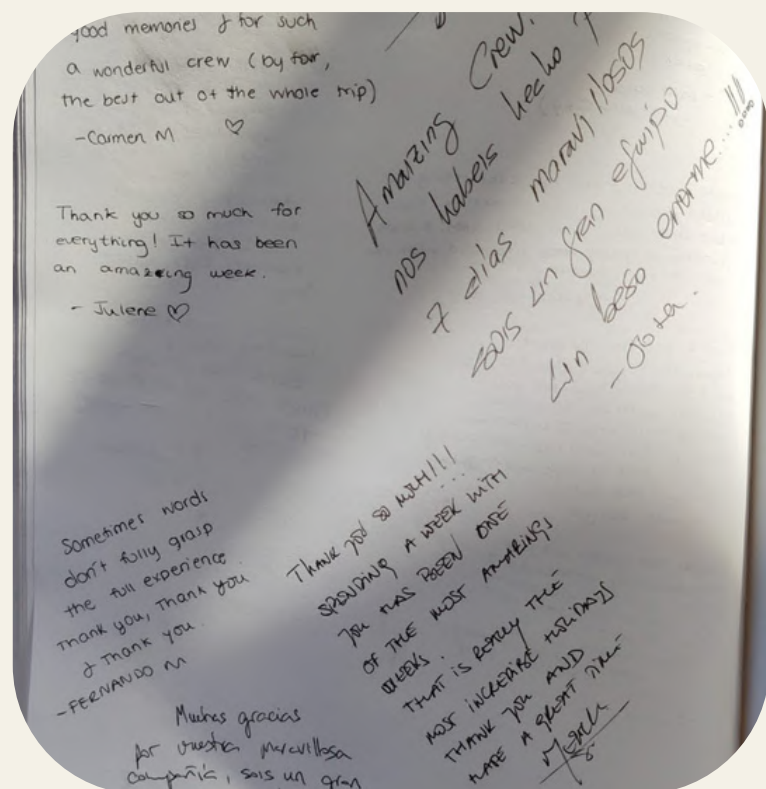 good memories & for such
a wonderful crew (by far,
the best out of the whole trip)
-Carmen M ♡
Thank you so much for
everything! It has been
an amazing week.
- Julene ♡
Amaizing Crew.
nos habeis hecho
7 días maravillosos
sois un gran equipo
Un beso enorme...!!!
Sometimes words
don't fully grasp
the full experience
Thank you, Thank you
& Thank you.
-FERNANDO M
THANK YOU SO MUCH!!!
SPENDING A WEEK WITH
YOU HAS BEEN ONE
OF THE MOST AMAZINGS
WEEKS.
THAT IS REALLY THE
MOST INCREIBLE HOLIDAYS
THANK YOU AND
HAVE A GREAT TIME
Muchas gracias
por vuestra maravillosa
compañía, sois un gran